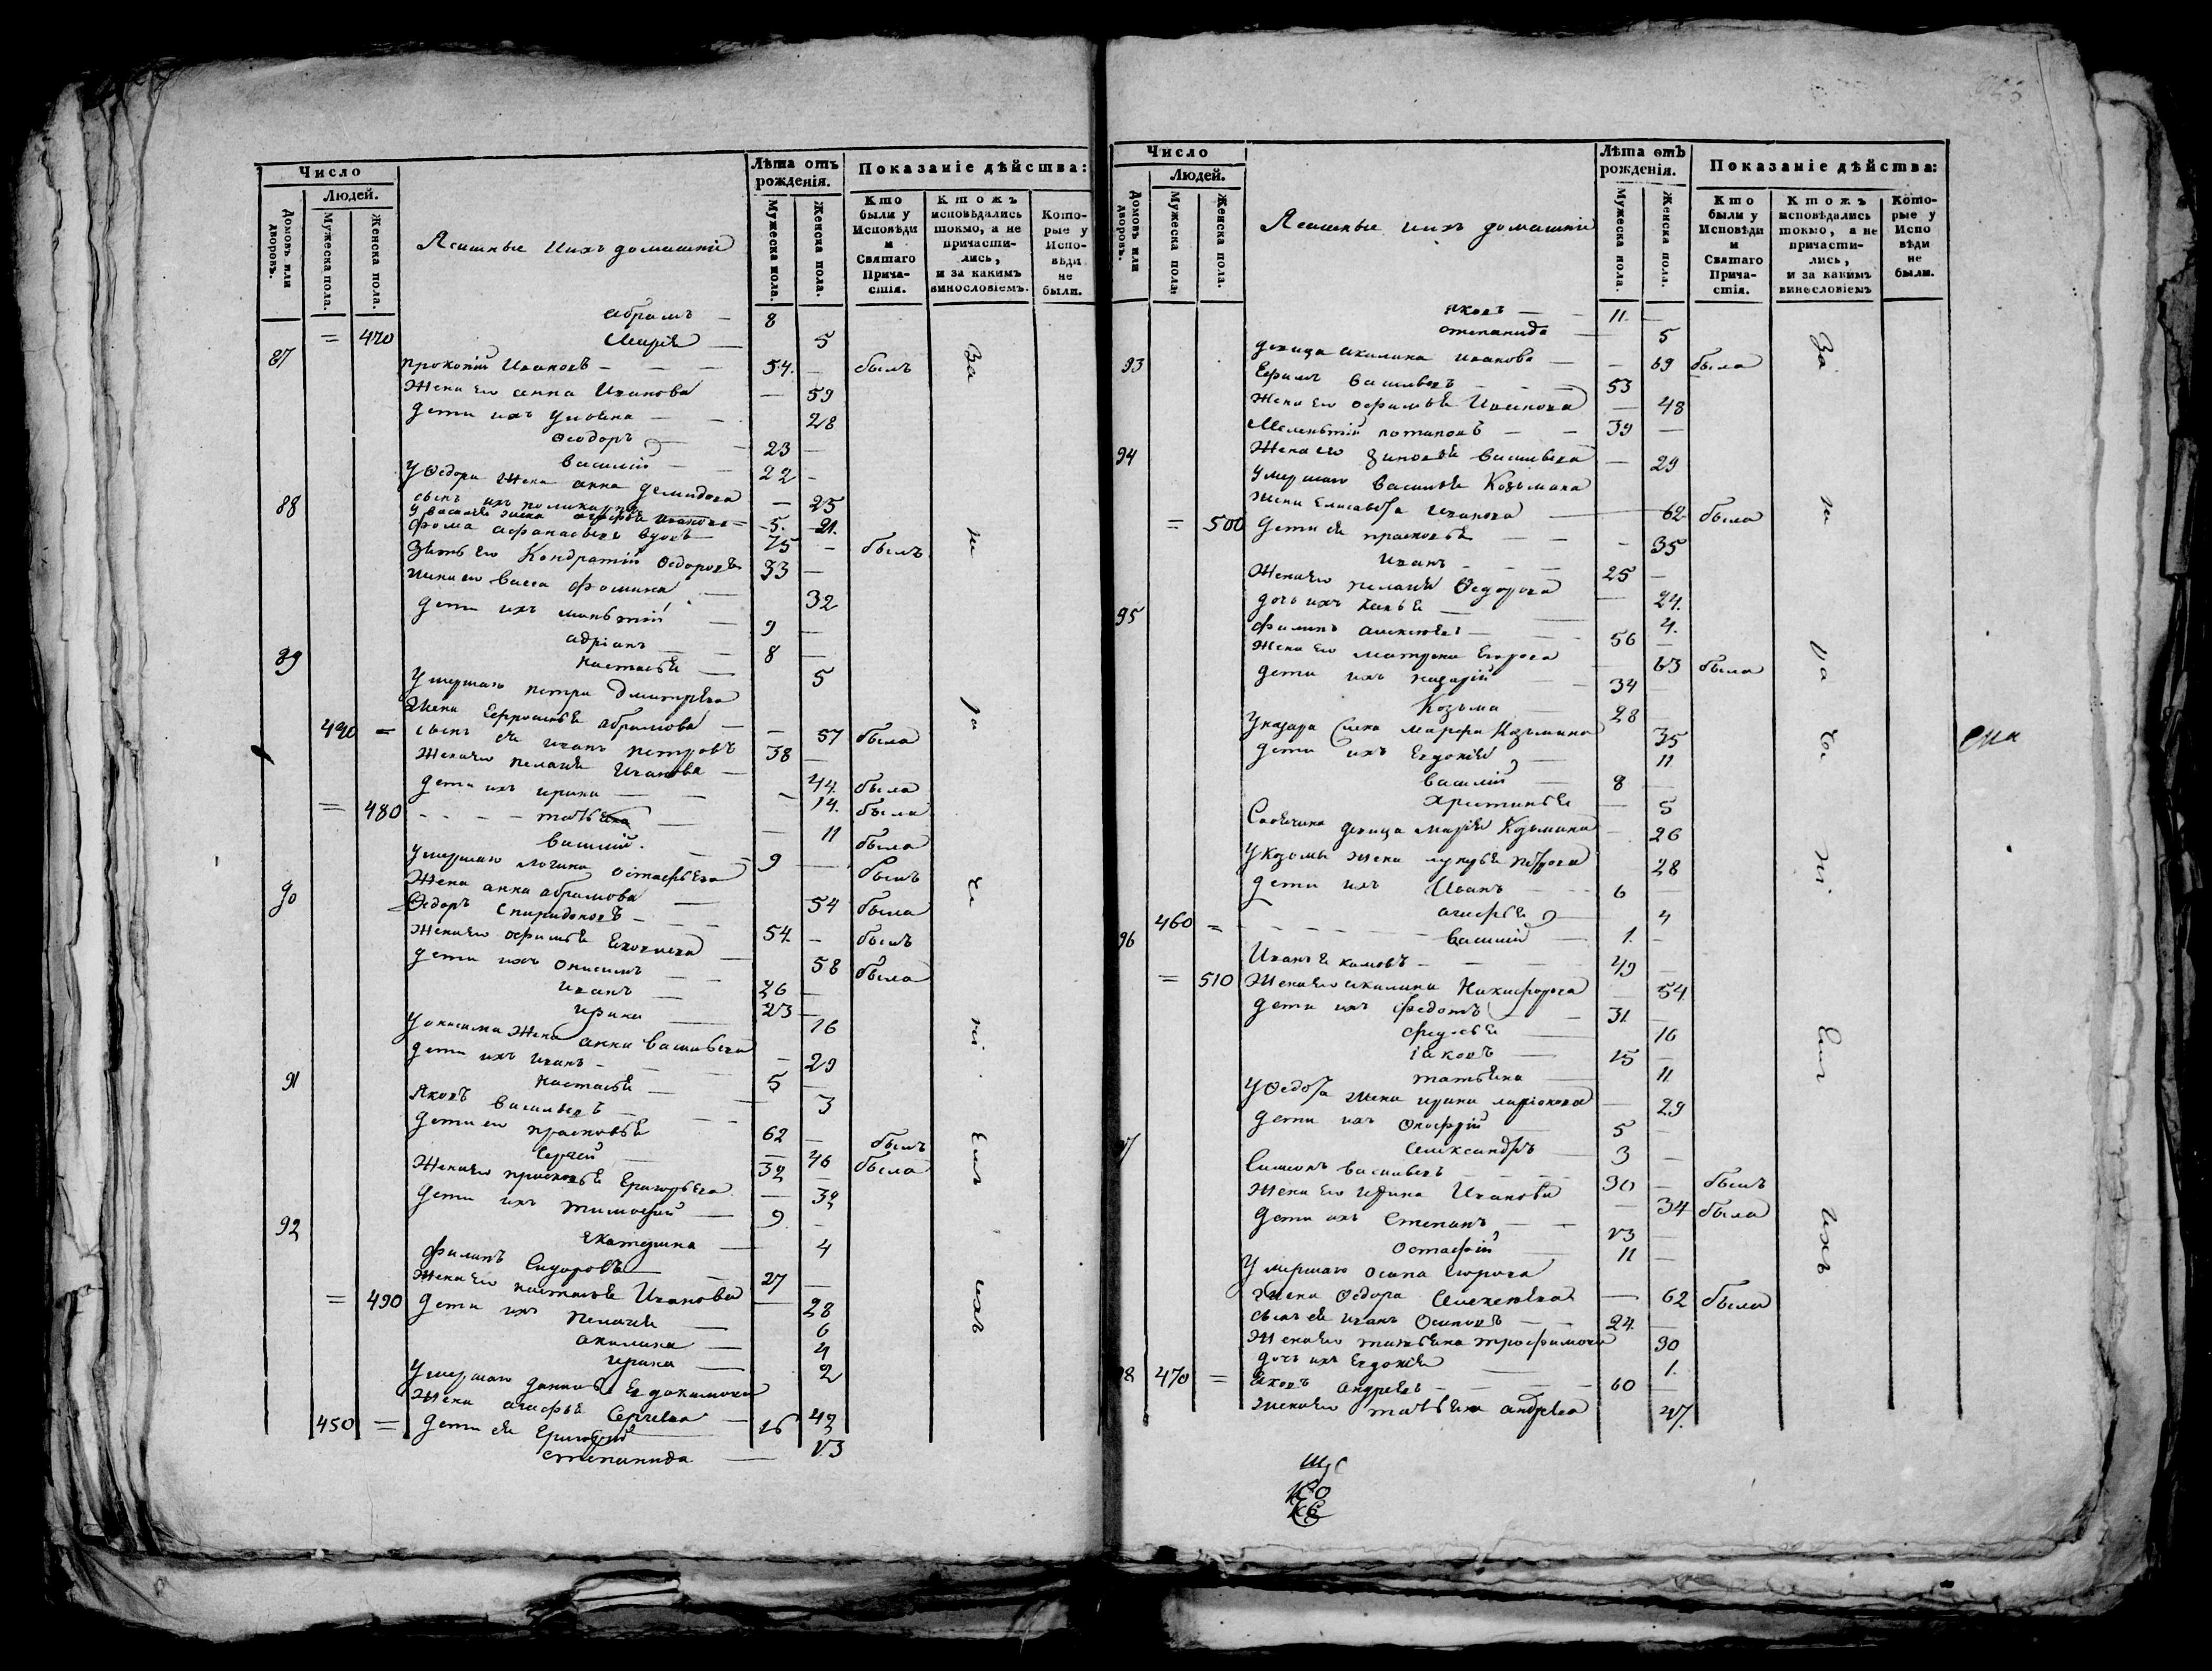 Число
Людей.
Домовъ или дворовъ.
Мужеска пола.
Женска пола.
Ясашные и ихъ домашніе
Лѣта отъ рожденія.
Мужеска пола.
Женска пола.
Показаніе дѣйства:
Кто были у Исповѣди и Святаго Причастія.
Ктожъ исповѣдались токмо, а не причастились, и за какимъ винословіемъ.
Которые у Исповѣди не были.
Абрамъ — 8
= 470 Марія — 5
87 Прокопій Ивановъ — 54. — былъ
Жена его Анна Иванова — 59
Дети ихъ Улияна — 28
Ѳеодоръ — 23 —
Василій — 22 —
У Ѳедора жена Анна Демидова — 25
сынъ ихъ Поликарпъ
У Василья жена Агафья Иванова = 5. 21.
88 Фома Афанасьевъ вдовъ — 75 — былъ
Зять его Кондратій Ѳедоровъ 33 —
Жена его Васса Фомина — 32
Дети ихъ — 9 —
Адріанъ — 8 —
Настасья — 5
89 Умершаго Петра Дмитріева
Жена Ефросинья Абрамова — 57 была
440 = сынъ ея Иванъ Петровъ 38 —
Жена его Пелагея Иванова — 44. была
Дети ихъ Ирина — 14. была
= 480 - - - - Татьяна — 11 была
Василій. — 9 — былъ
Умершаго Логина Остафьева
Жена Анна Абрамова — 54 была
90 Ѳедоръ Спиридоновъ — 54. — былъ
Жена его Офимья — 58 была
Дети ихъ Онисимъ — 26 —
Иванъ — 23 —
Ирина — 16
У Онисима жена Анна Васильева — 29
Дети ихъ Иванъ — 5 —
Настасья — 3
91 Яковъ Васильевъ — 62 — былъ
Дети ево Прасковья — 46 была
Сергей — 32 —
Жена его Прасковья Григорьева — 32
Дети ихъ Тимофей — 9 —
Екатерина — 4
92 Филипъ Сидоровъ — 27 —
Жена его Настасья Иванова — 28
= 490 Дети ихъ Пелагея — 6
Акилина — 4
Ирина — 2
Умершаго Данилы Евдокимова
Жена Агафья Сергеева — 42
450 = Дети ея Григорій 16
Степанида — 13
За не ра че ні емъ ихъ
Число
Людей.
Домовъ или дворовъ.
Мужеска пола.
Женска пола.
Ясашные и ихъ домашніе
Лѣта отъ рожденія.
Мужеска пола.
Женска пола.
Показаніе дѣйства:
Кто были у Исповѣди и Святаго Причастія.
Ктожъ исповѣдались токмо, а не причастились, и за какимъ винословіемъ
Которые у Исповѣди не были.
Яковъ — 11. —
Степанида — 5
Девица Акилина Иванова — 69 была
93 Ефимъ Васильевъ — 53
Жена его Офимья Иванова — 48
Мелентій Потаповъ — 39 —
94 Жена его Зиновья Васильева — 29
Умершаго Василья Козьмина
Жена Елисавета Иванова — 62 была
= 500 Дети ея Прасковья — 35
Иванъ — 25 —
Жена его Пелагея Ѳедорова — 24.
Дочь ихъ — 4.
95 Филипъ Алексеевъ — 56 —
Жена его Матрона Егорова — 63 была
Дети ихъ Назарій — 34 —
Козьма — 28
У Назара жена Марфа Козьмина 35
Дети ихъ Евдокія — 11
Василій — 8 —
Христинья — 5
девица Марія Козьмина — 26
У Козьмы жена Лукерья Петрова 28
Дети ихъ Иванъ — 6 —
460 = Агафья — 4
Василій — 1. —
96 Иванъ — 49 —
= 510 Жена его Акилина Никифорова — 54
Дети ихъ Федотъ — 31 —
16
Іаковъ — 15 —
Татьяна — 11
У Ѳедота жена Ирина Ларіонова — 29
Дети ихъ Онофрій — 5 —
Александръ — 3 —
97 Симеонъ Васильевъ — 30 — былъ
Жена его Ирина Иванова — 34 была
Дети ихъ Степанъ — 13 —
Остафій — 11 —
Умершаго Осипа Егорова
Жена Ѳедора Алексеева — 62 была
Сынъ ея Иванъ Осиповъ — 24. —
Жена его Татьяна Трофимова 30
Дочь ихъ Евдокия — 1.
98 470 = Яковъ Андреевъ — 60 —
Жена его Татьяна Андреева 47.
За не ра че ні емъ ихъ